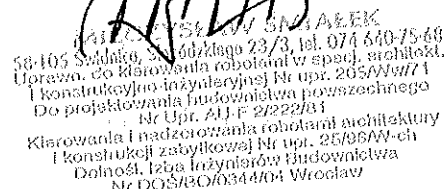 58-105 Świdnica, 23/3, tel. 074 640-75-68
Uprawn. do kierowania robotami w specj. architekt.
i konstrukcyjno-inżynieryjnej Nr upr. 205/Ww/71
Do projektowania budownictwa powszechnego
Nr Upr. AU-F 2/222/81
Kierowania i nadzorowania robotami architektury
i konstrukcji zabytkowej Nr upr. 25/96/W-ch
Dolnośl. Izba Inżynierów Budownictwa
Nr DOŚ/BO/0344/04 Wrocław